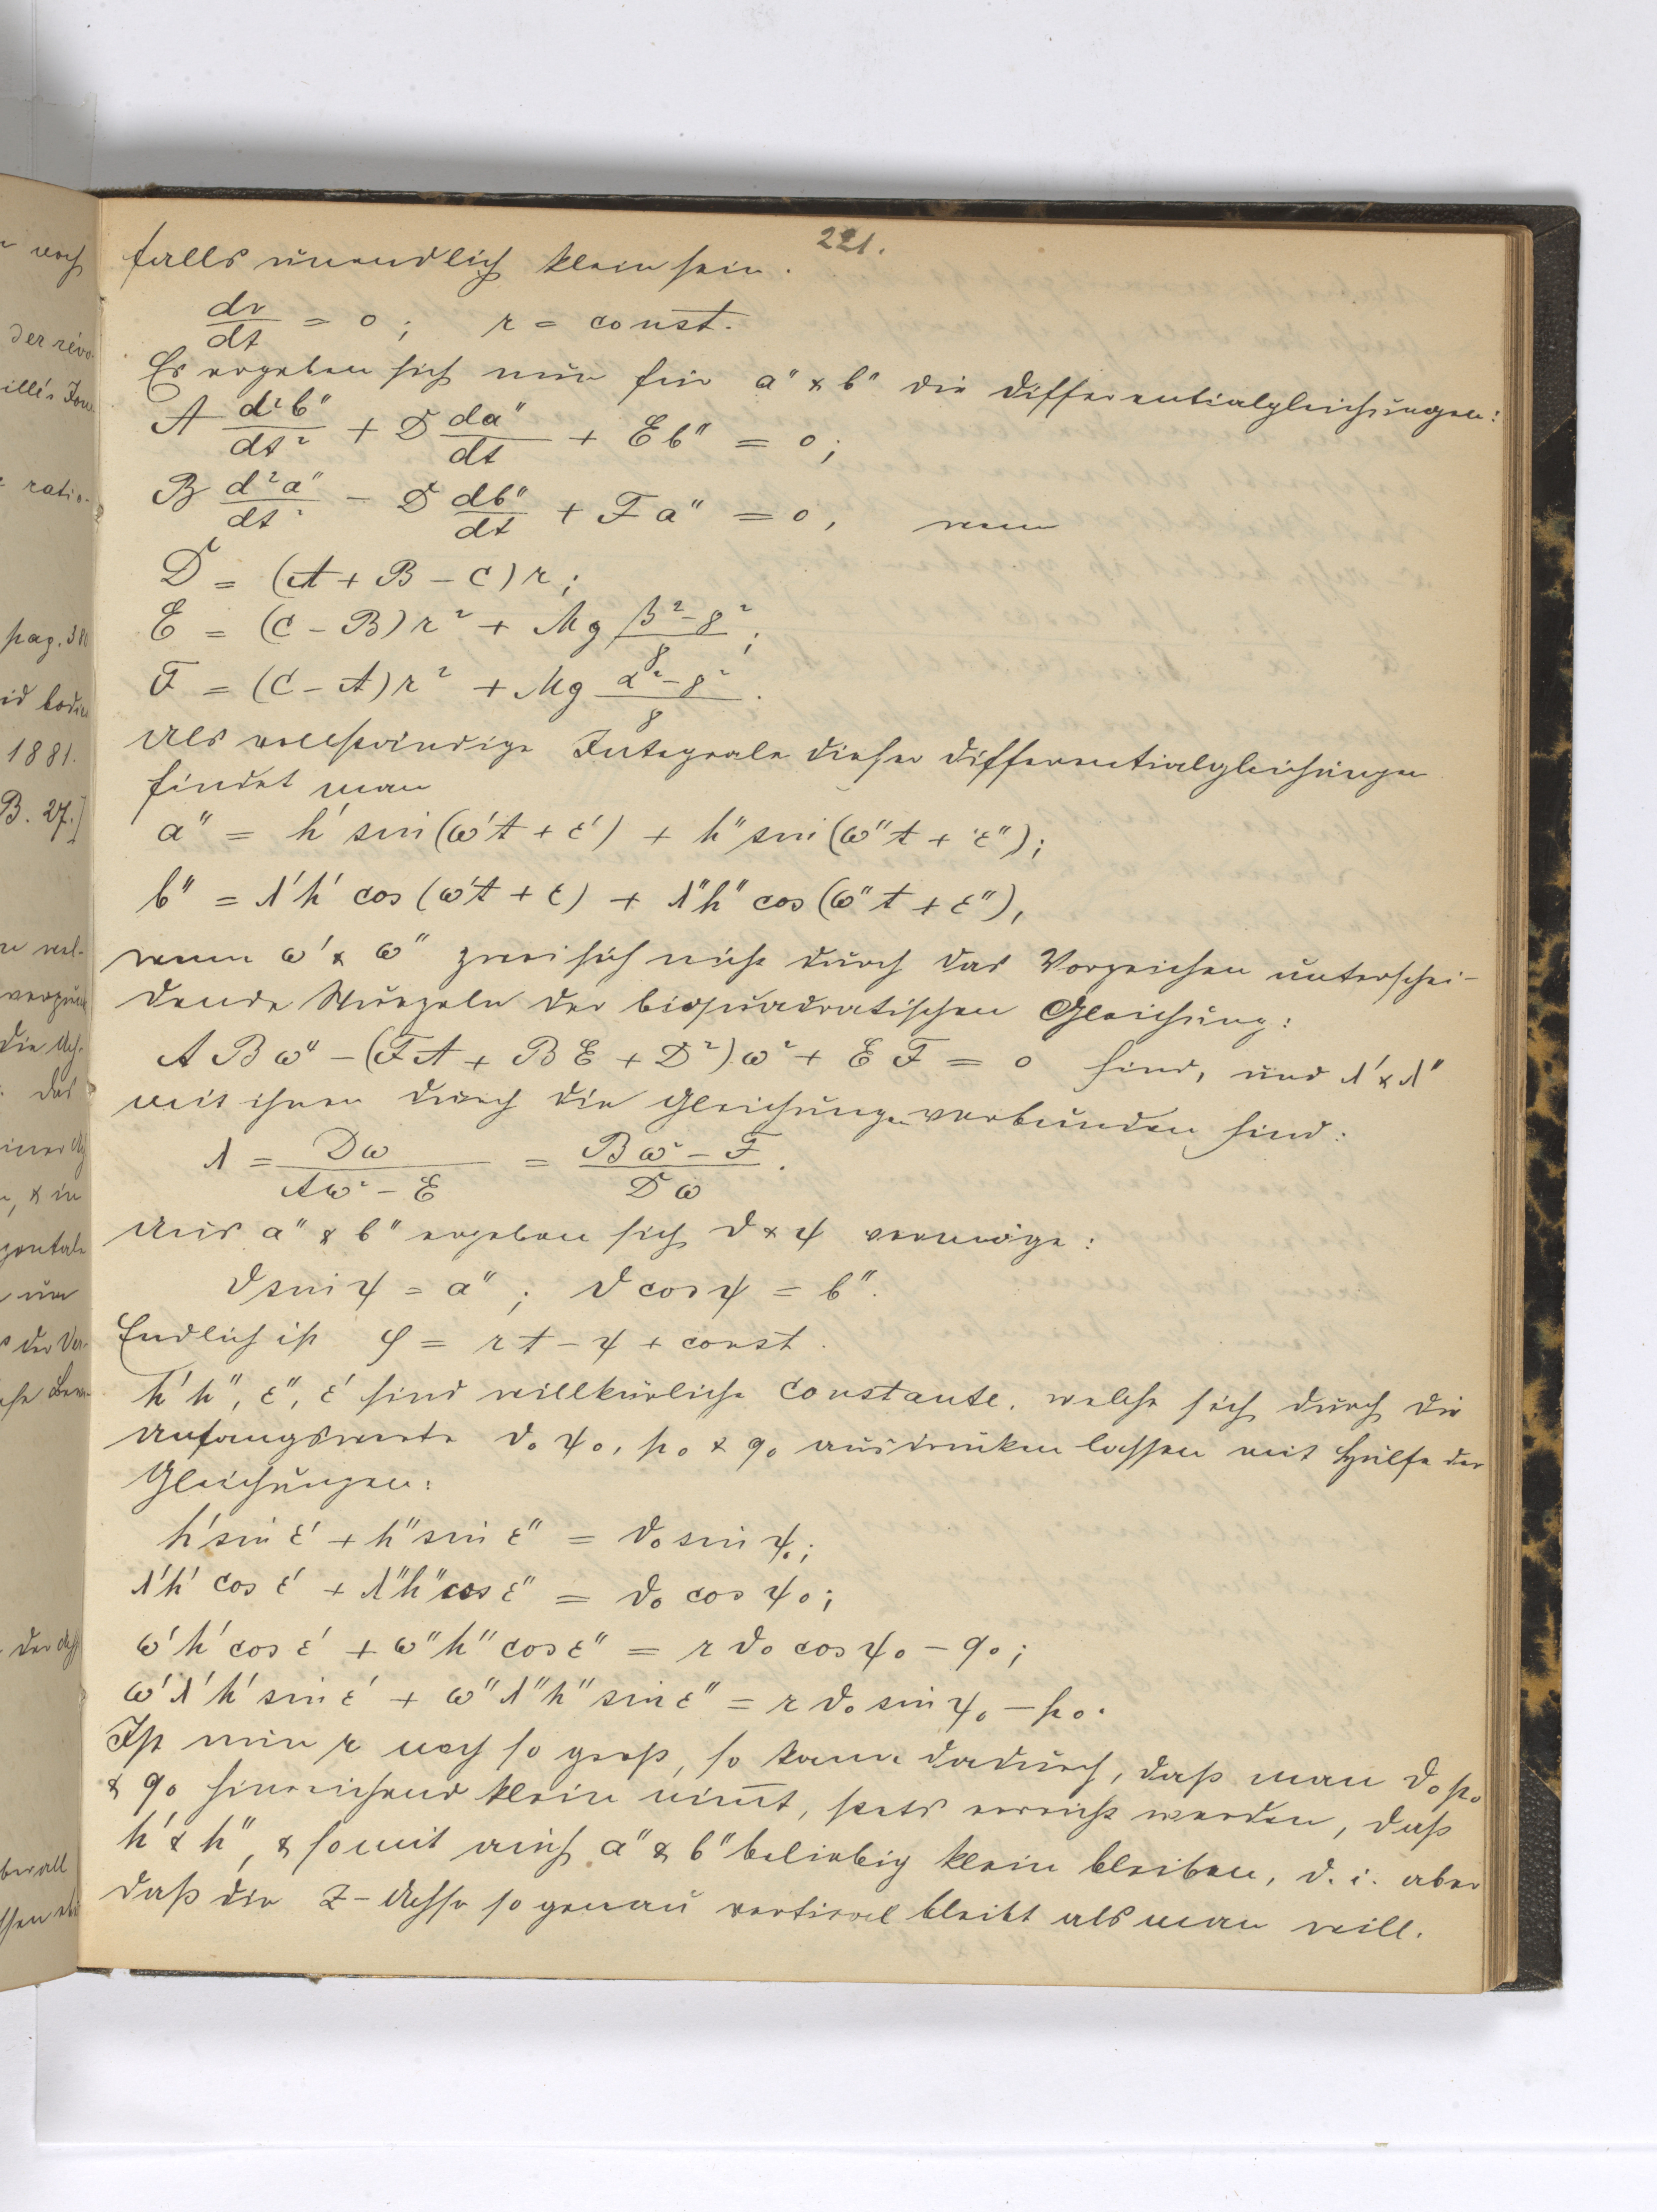 221.
falls unendlich klein sein.
dr/dt = 0; r = const.
Es ergeben sich nun für a" & b" die Differentialgleichungen:
A d²b"/dt² + D da"/dt + E b" = 0;
B d²a"/dt² - D db"/dt + F a" = 0, wenn
D = (A + B - C) r;
E = (C - B) r² + Mg (β² - γ²)/γ;
F = (C - A) r² + Mg (α² - γ²)/γ.
Als vollständige Integrale dieser Differentialgleichungen
findet man
a" = h' sin (ω't + ε') + h" sin (ω"t + ε");
b" = λ'h' cos (ω't + ε) + λ"h" cos (ω"t + ε"),
wenn ω' & ω" zwei sich nicht durch das Vorzeichen unterschei-
dende Wurzeln der biquadratischen Gleichung:
A B ω⁴ - (F A + B E + D²) ω² + E F = 0 sind, und λ' & λ"
mit ihnen durch die Gleichungen verbunden sind:
λ = Dω/(Aω² - E) = (Bω² - F)/(Dω).
Aus a" & b" ergeben sich ϑ & ψ vermöge:
ϑ sin ψ = a"; ϑ cos ψ = b".
Endlich ist φ = rt - ψ + const.
h' h", ε", ε' sind willkürliche Constante, welche sich durch die
Anfangswerte ϑ₀ ψ₀, p₀ & q₀ ausdrücken lassen mit Hülfe der
Gleichungen:
h' sin ε' + h" sin ε" = ϑ₀ sin ψ₀;
λ'h' cos ε' + λ"h" cos ε" = ϑ₀ cos ψ₀;
ω'h' cos ε' + ω"h" cos ε" = r ϑ₀ cos ψ₀ - q₀;
ω'λ'h' sin ε' + ω"λ"h" sin ε" = r ϑ₀ sin ψ₀ - p₀.
Ist nun r noch so groß, so kann dadurch, daß man ϑ₀ p₀
& q₀ hinreichend klein nim̄t, stets erreicht werden, daß
h' & h", & somit auch a" & b" beliebig klein bleiben, d. i. aber
daß die Z-Achse so genau vertical bleibt als man will.
noch
der révo-
ille's Jour
ratio-
pag. 38
id bodie
1881.
B. 27.]
die
das
& in
zontale
der
berall